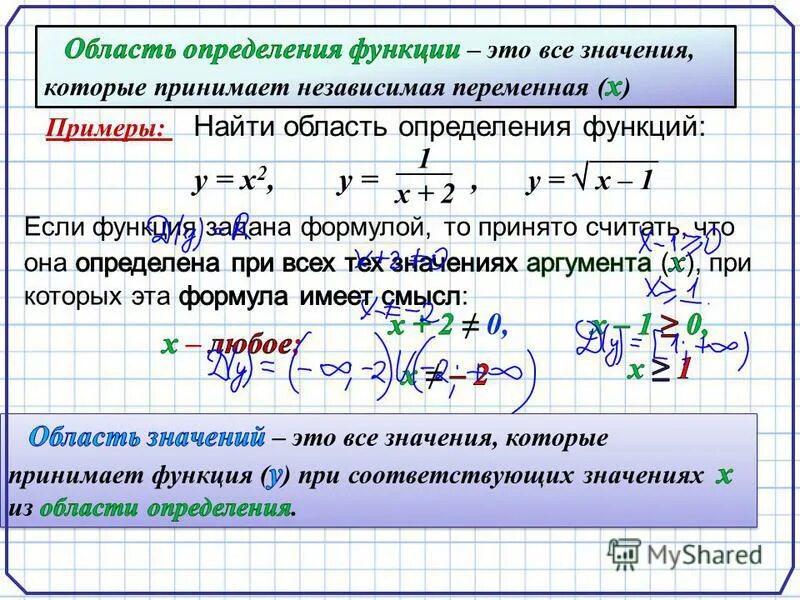 Область определения функции – это все значения,
которые принимает независимая переменная (х)
Примеры: Найти область определения функций:
y = x², y = 1/(x + 2), y = √x – 1
Если функция задана формулой, то принято считать, что
она определена при всех тех значениях аргумента (х), при
которых эта формула имеет смысл:
D(y) = R
x+2≠0
x≠-2
x-1≥0
x≥1
х – любое;
x + 2 ≠ 0,
x ≠ – 2
x – 1 ≥ 0,
x ≥ 1
D(y) = (-∞; -2)∪(-2; +∞)
D(y) = [1; +∞)
Область значений – это все значения, которые
принимает функция (у) при соответствующих значениях х
из области определения.
MyShared